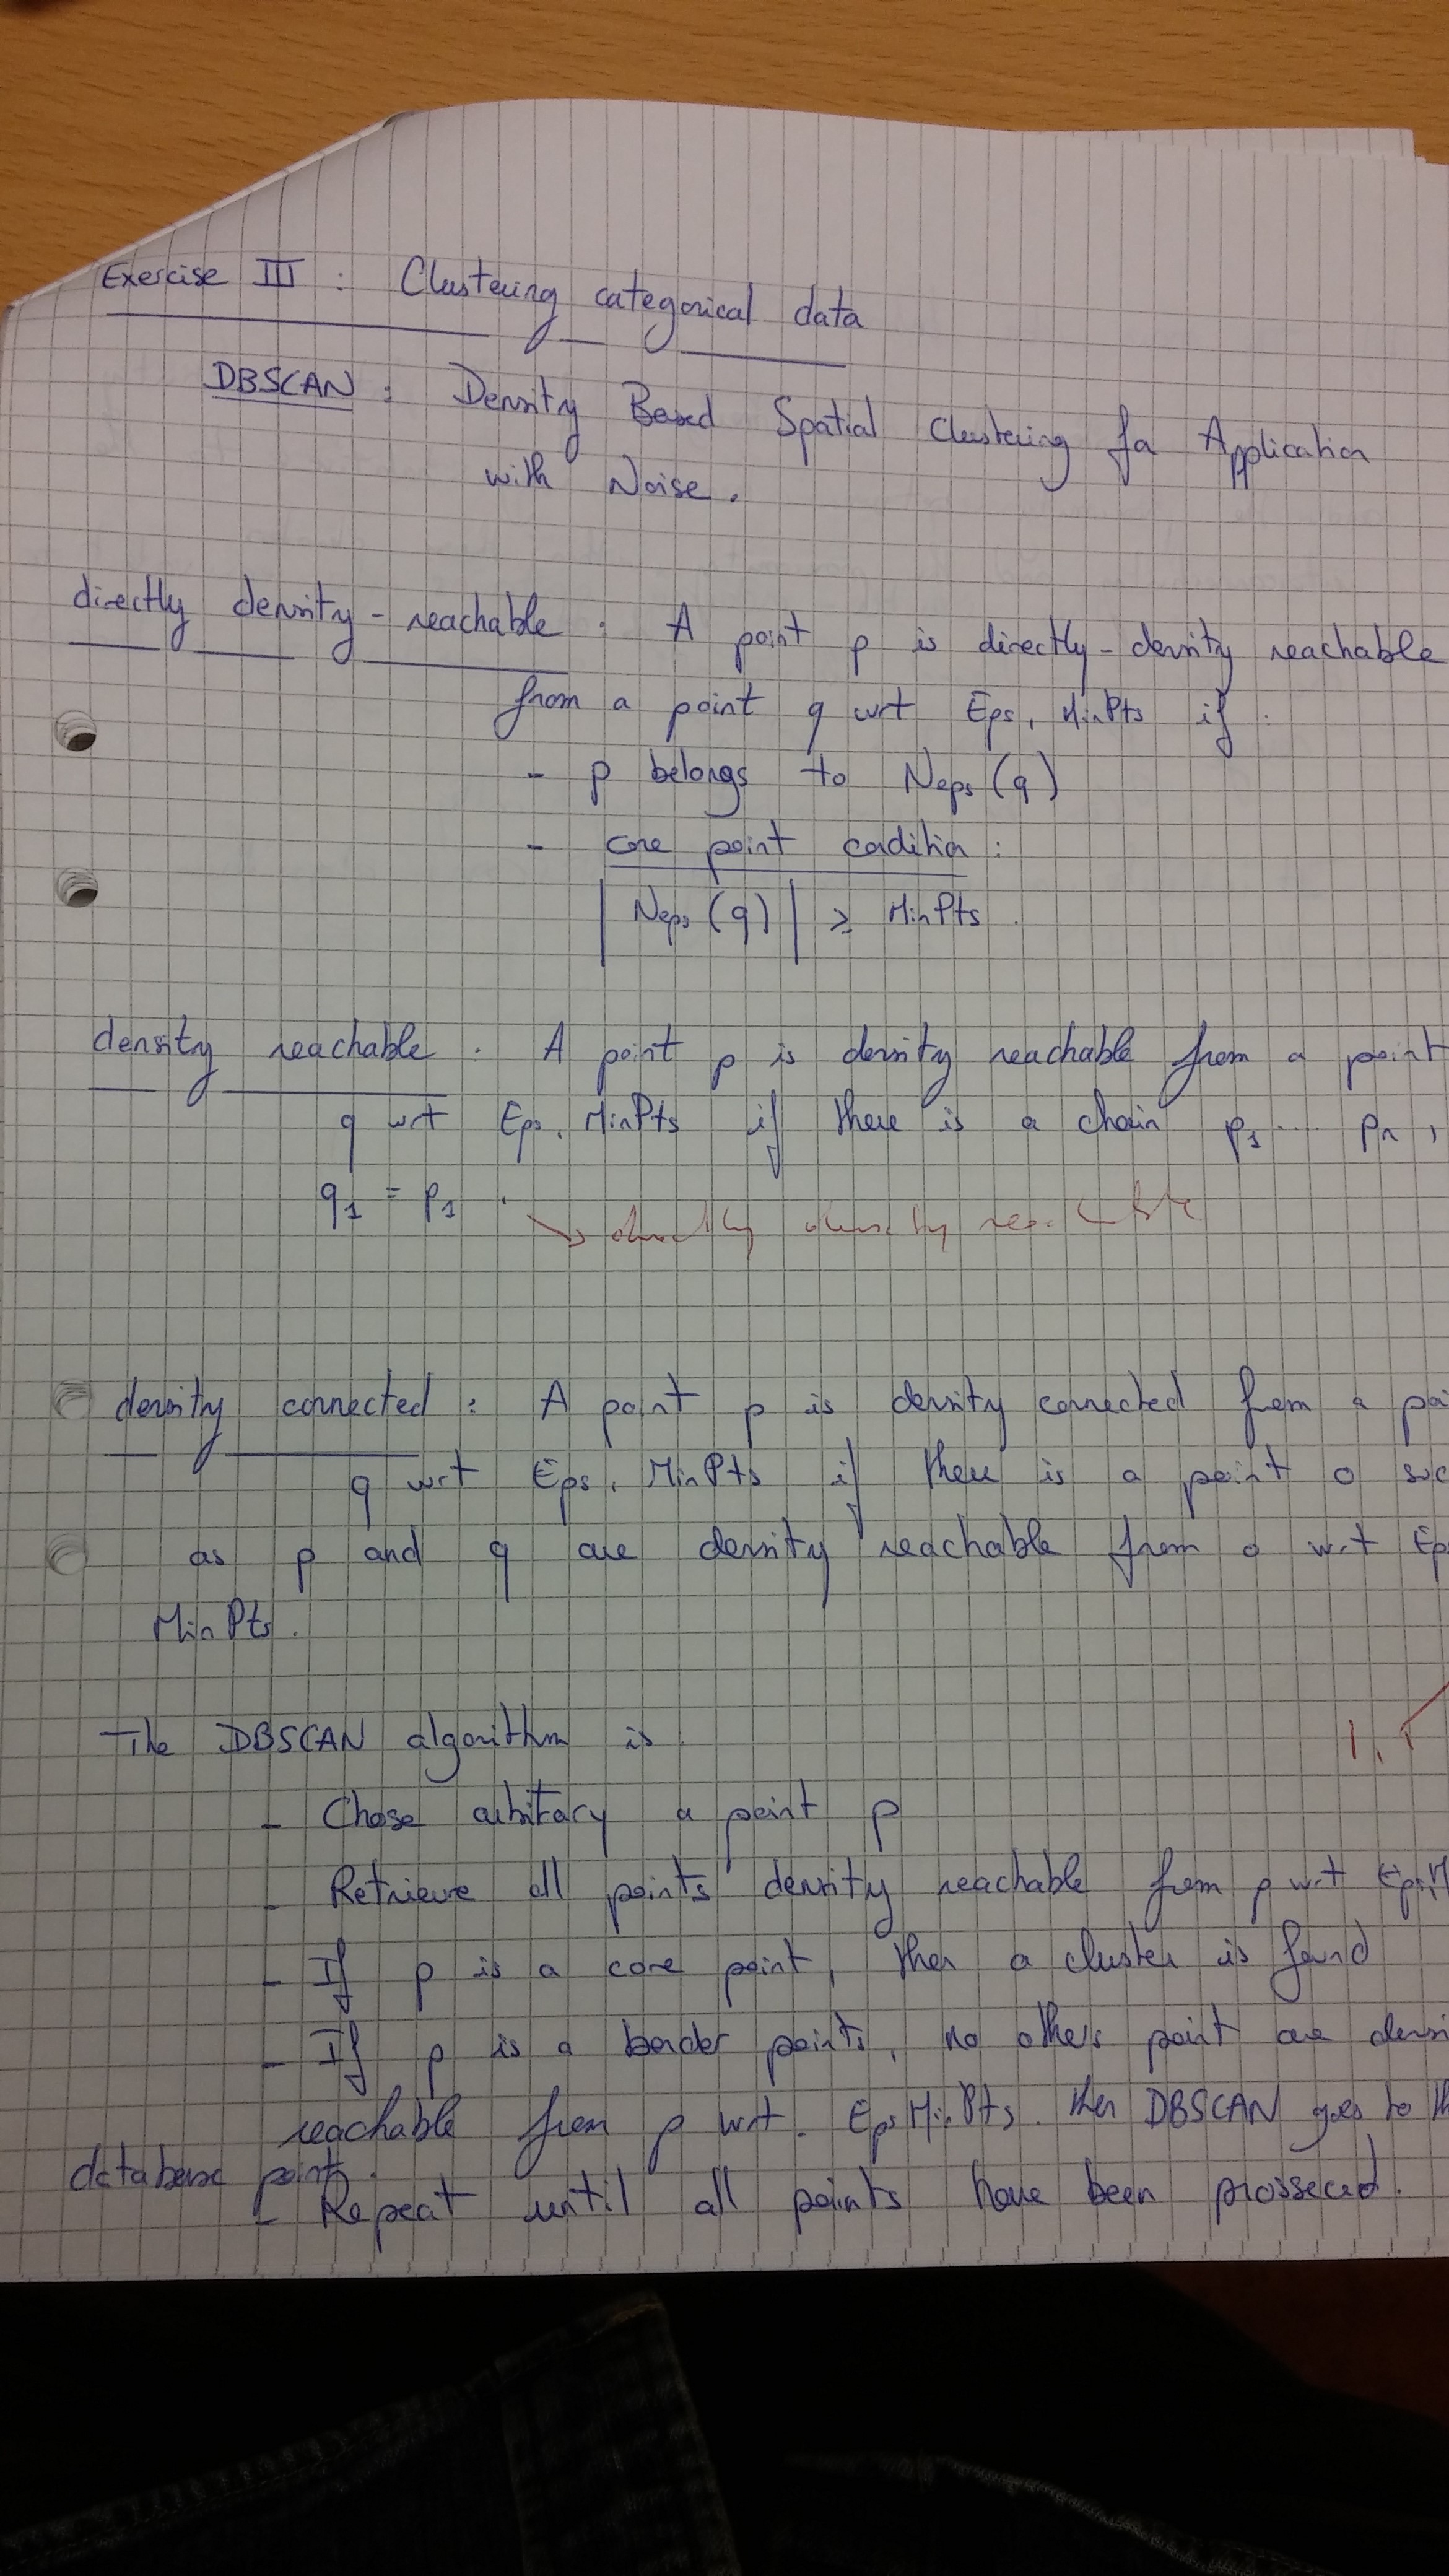 Exercise III : Clustering categorical data
DBSCAN : Density Based Spatial Clustering for Application
with Noise.
directly density-reachable : A point p is directly-density reachable
from a point q wrt Eps, MinPts if :
- p belongs to Neps (q)
- core point condition :
| Neps (q) | ≥ MinPts.
density reachable : A point p is density reachable from a point
q wrt Eps, MinPts if there is a chain p1 .... pn ,
q1 = p1 .
↘ directly density reachable
density connected : A point p is density connected from a poi
q wrt Eps, MinPts if there is a point o suc
as p and q are density reachable from o wrt Ep
MinPts.
The DBSCAN algorithm is :
1.5
- Chose arbitrary a point p
- Retrieve all points density reachable from p wrt Eps,M
- If p is a core point, then a cluster is found
- If p is a border points, no others point are densi
reachable from p wrt. Eps MinPts. then DBSCAN goes to th
database point.
- Repeat until all points have been prosseced.